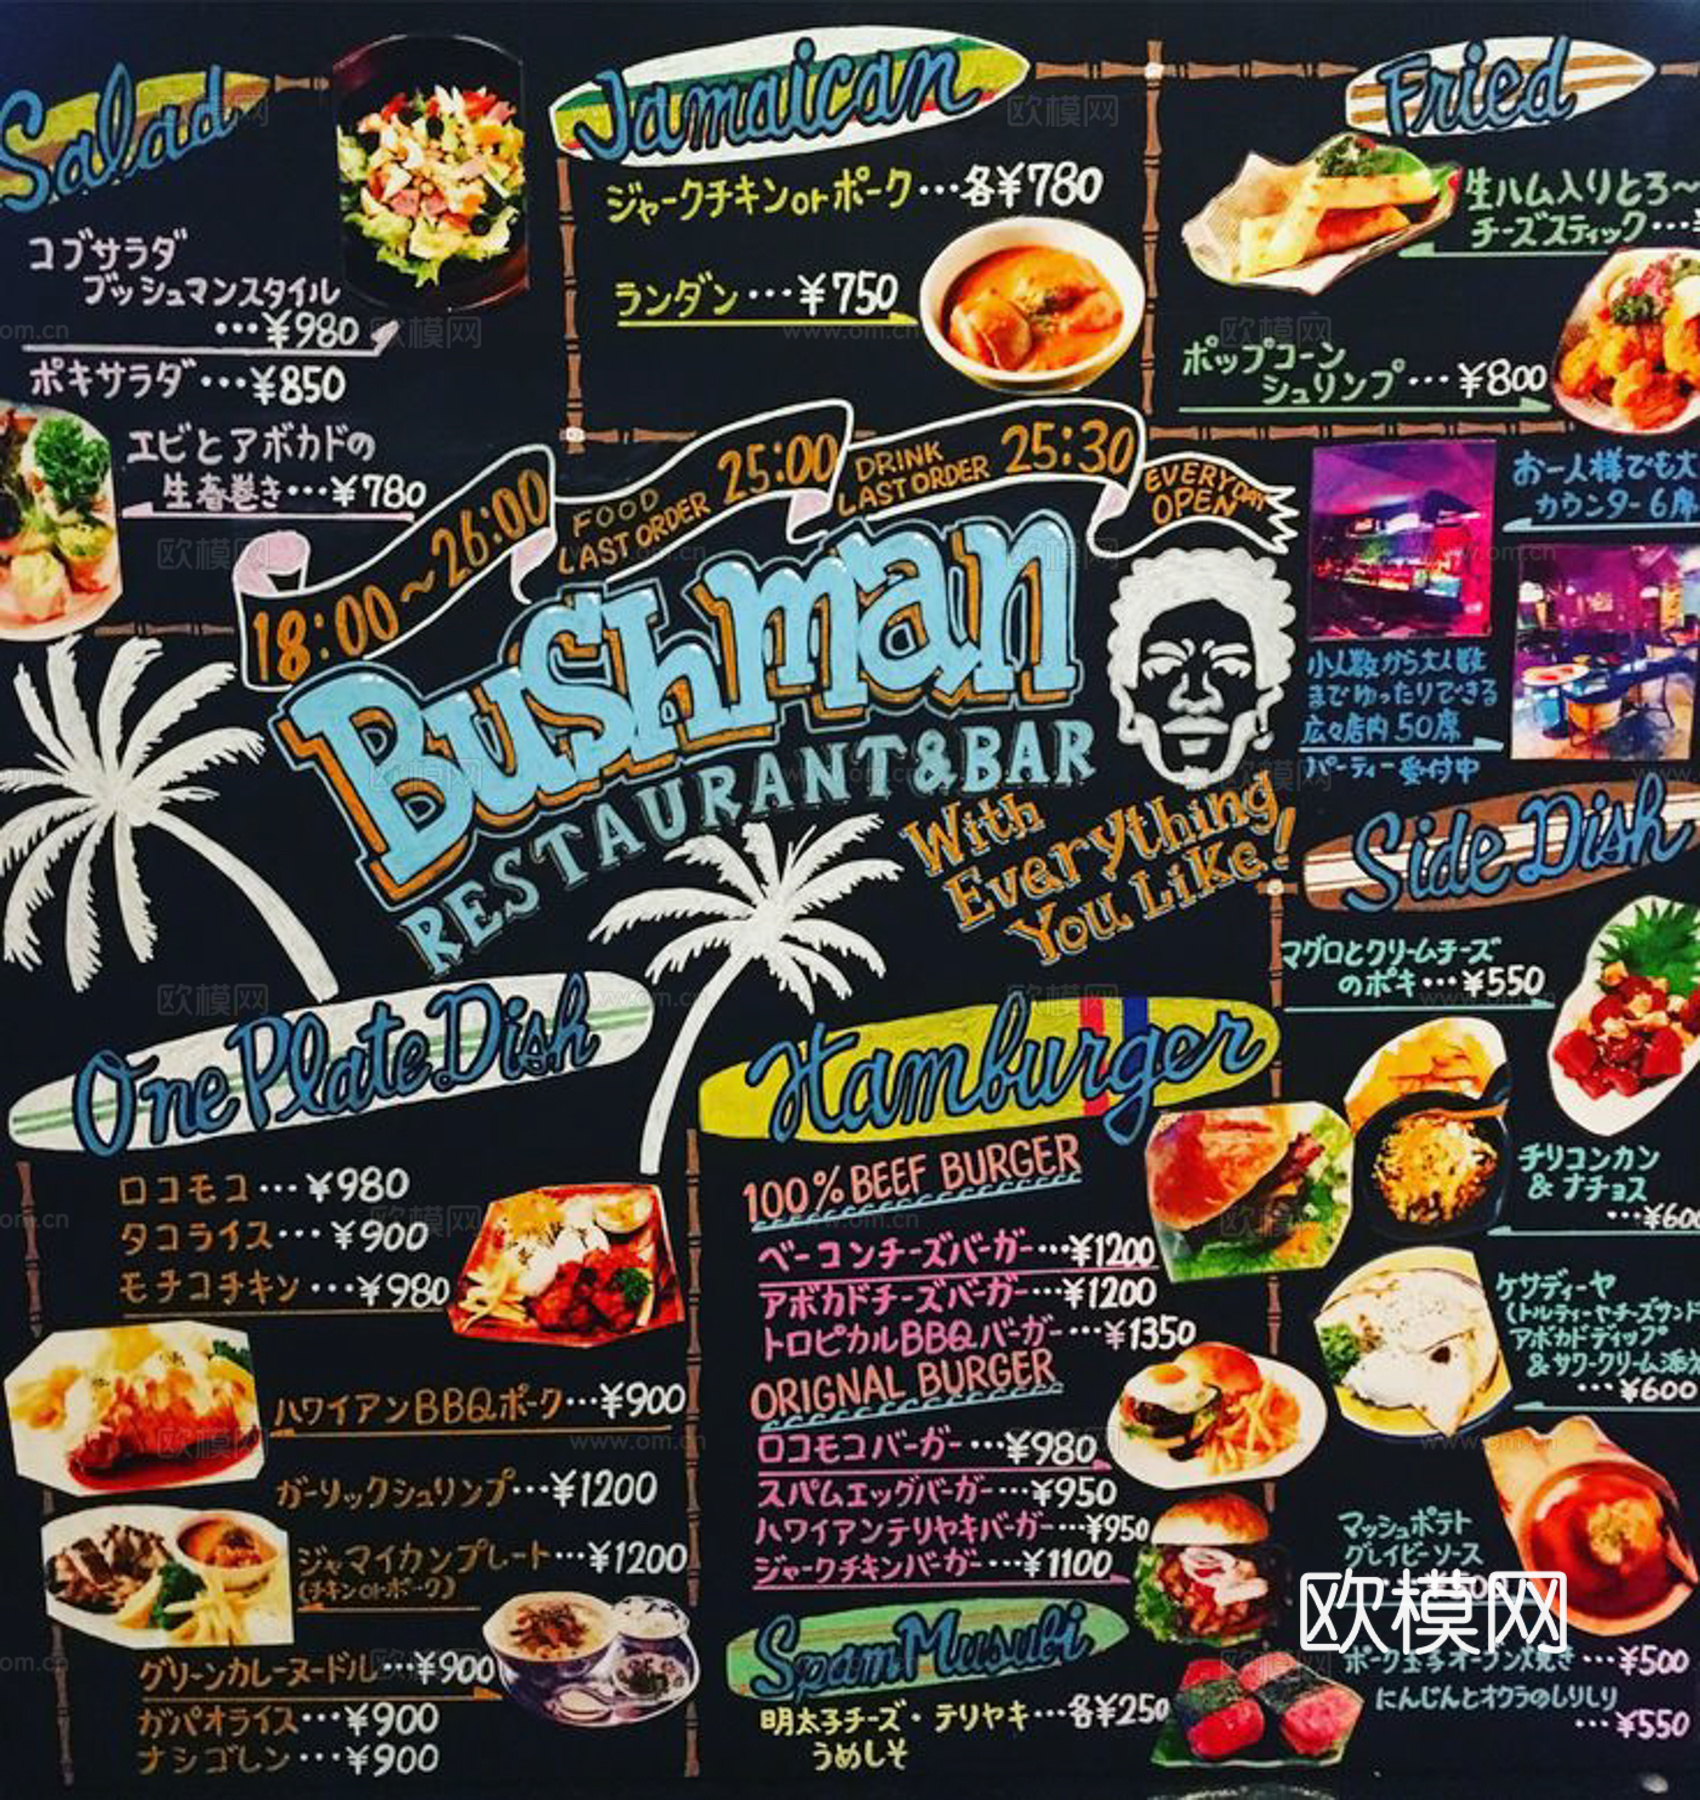 Salad
コブサラダ
ブッシュマンスタイル
…¥980
ポキサラダ…¥850
エビとアボカドの
生春巻き…¥780
Jamaican
ジャークチキンorポーク…各¥780
ランダン…¥750
Fried
生ハム入りとろ〜
チーズスティック…
ポップコーン
シュリンプ…¥800
18:00〜26:00
FOOD
LAST ORDER 25:00
DRINK
LAST ORDER 25:30
EVERYDAY
OPEN
Bushman
RESTAURANT&BAR
With
Everything
You Like!
お一人様でも大
カウンター6席
小人数から大人数
までゆったりできる
広々店内50席
パーティー受付中
Side Dish
マグロとクリームチーズ
のポキ…¥550
チリコンカン
&ナチョス
…¥600
ケサディーヤ
(トルティーヤチーズサンド
アボカドディップ
&サワークリーム添え
…¥600
マッシュポテト
グレイビーソース
ポーク玉子オーブン焼き…¥500
にんじんとオクラのしりしり
…¥550
One Plate Dish
ロコモコ…¥980
タコライス…¥900
モチコチキン…¥980
ハワイアンBBQポーク…¥900
ガーリックシュリンプ…¥1200
ジャマイカンプレート…¥1200
(チキンorポーク)
グリーンカレーヌードル…¥900
ガパオライス…¥900
ナシゴレン…¥900
Hamburger
100%BEEF BURGER
ベーコンチーズバーガー…¥1200
アボカドチーズバーガー…¥1200
トロピカルBBQバーガー…¥1350
ORIGNAL BURGER
ロコモコバーガー…¥980
スパムエッグバーガー…¥950
ハワイアンテリヤキバーガー…¥950
ジャークチキンバーガー…¥1100
Spam Musubi
明太子チーズ・テリヤキ…各¥250
うめしそ
欧模网
www.om.cn